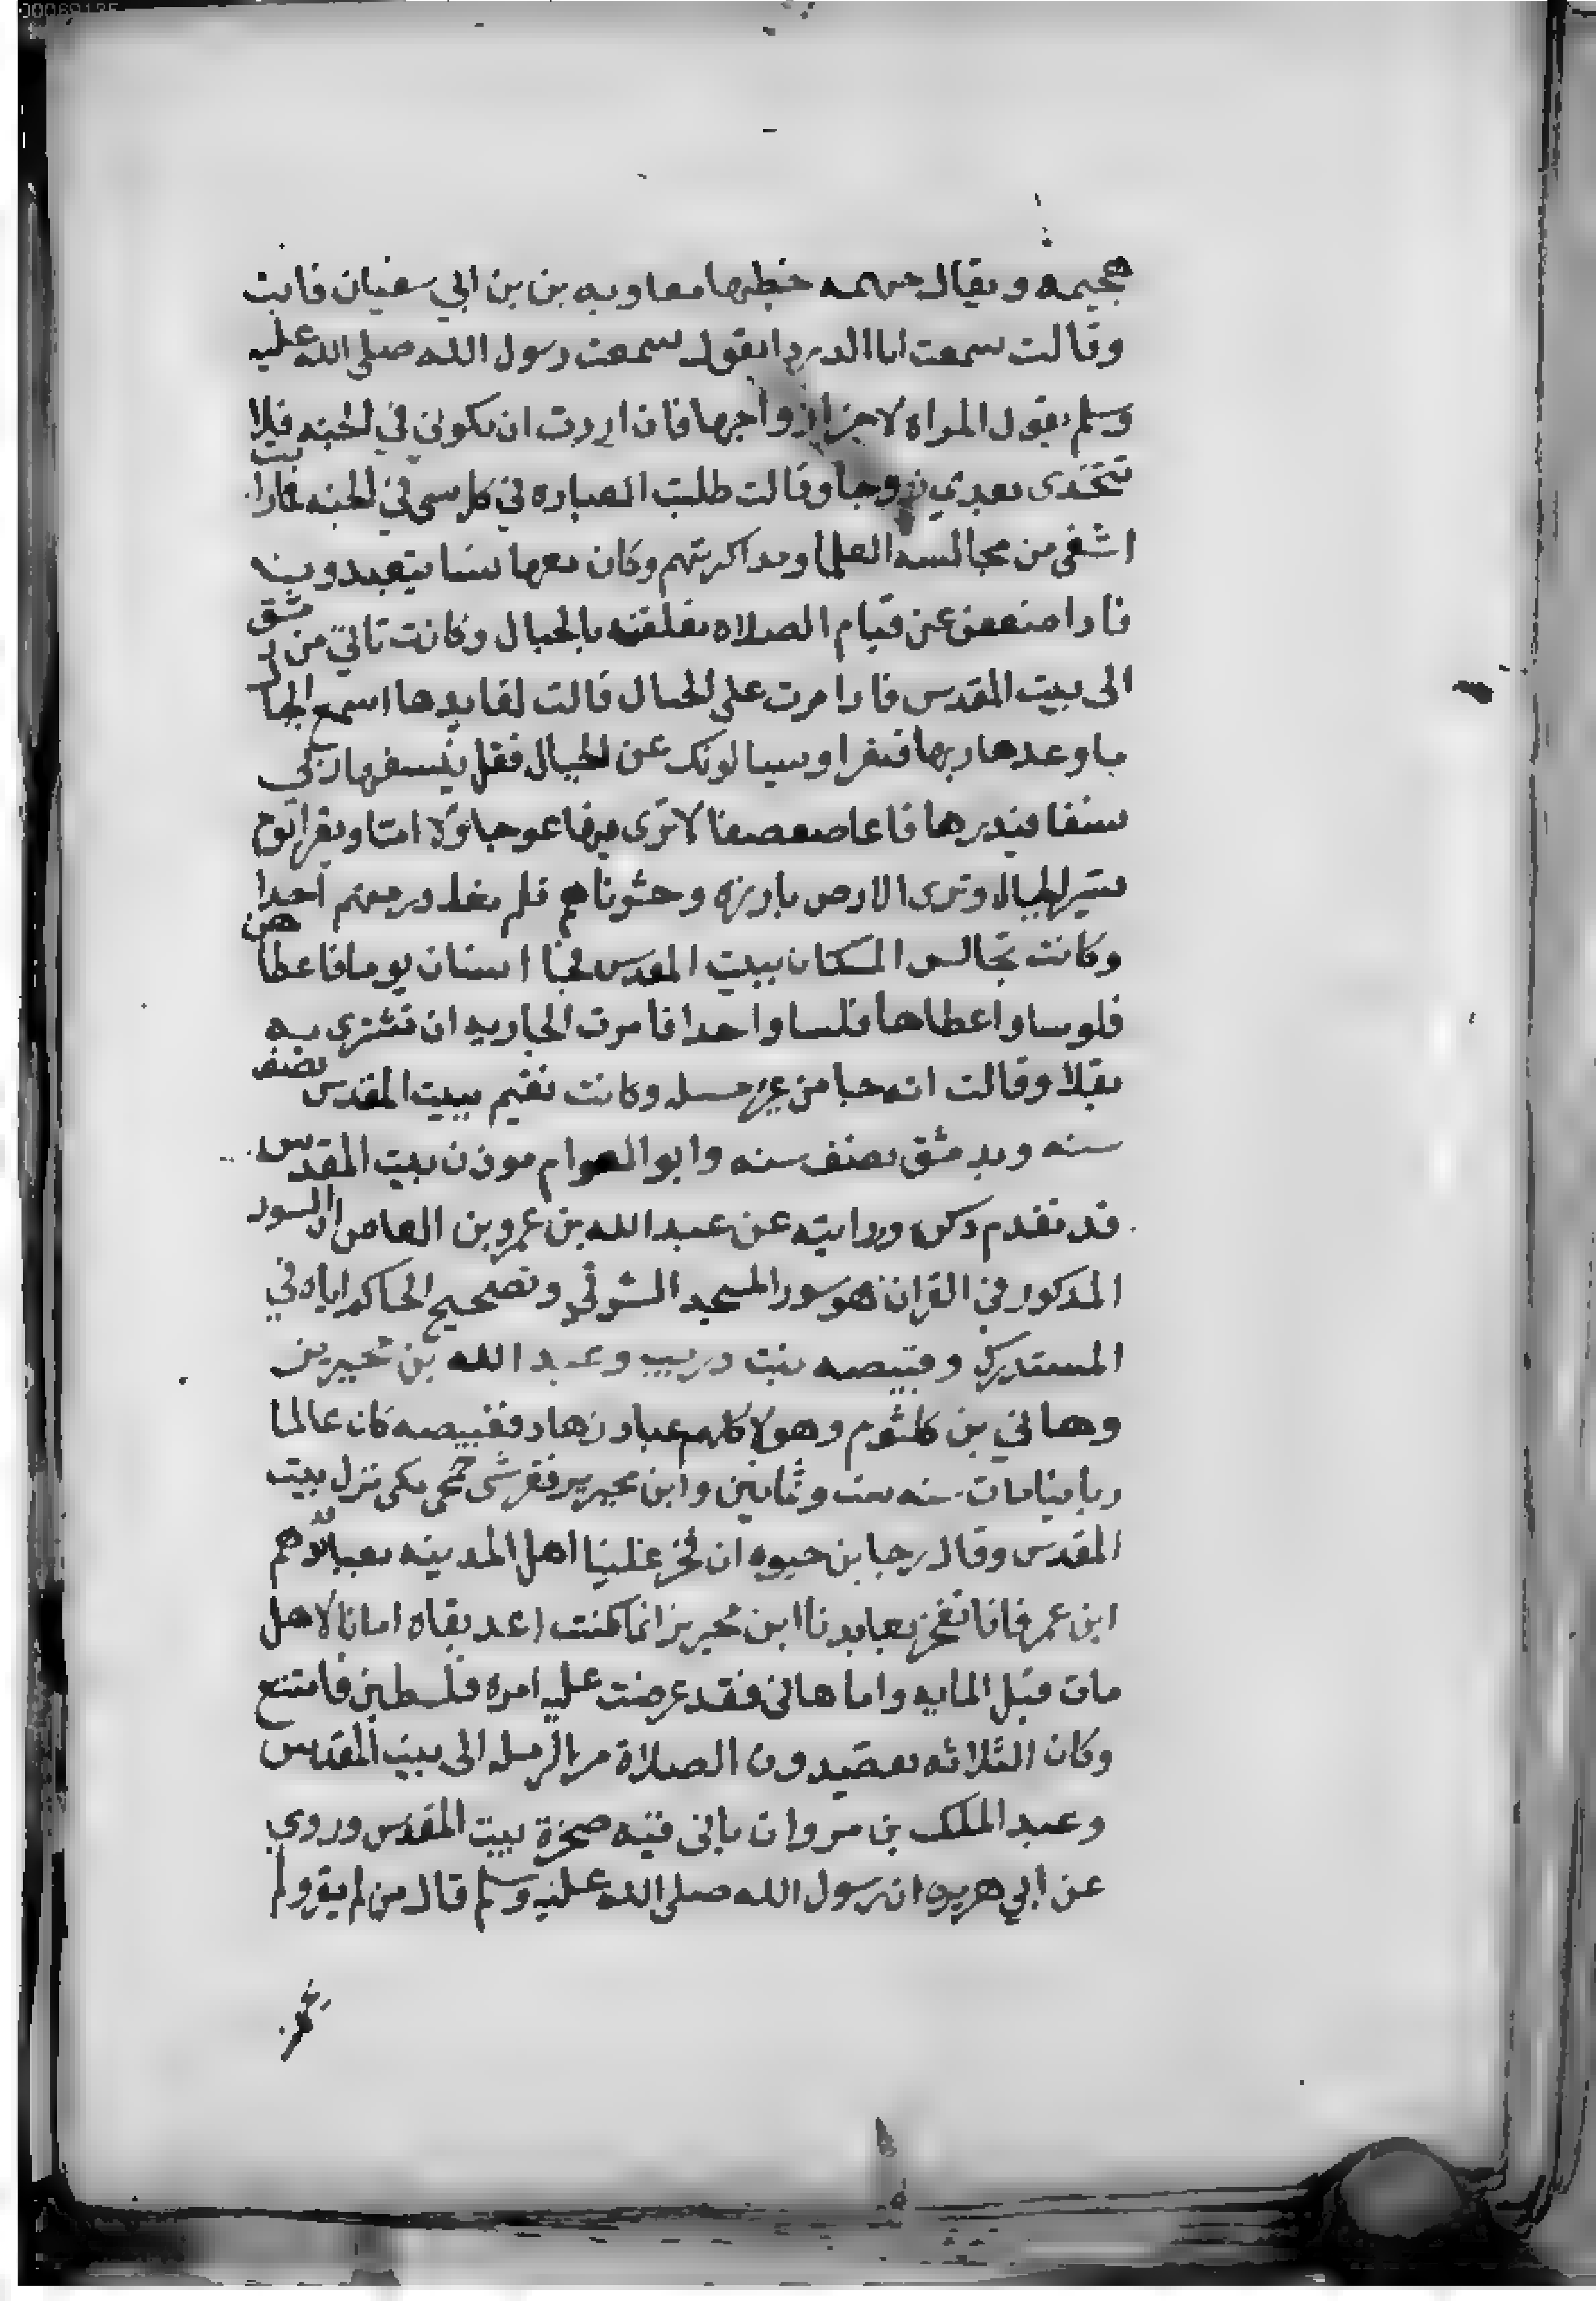 هجيمه ويقال جهيمه خطبها معاويه بن بن ابي سفيان فابت
وقالت سمعت ابا الدردا يقول سمعت رسول الله صلى الله عليه
وسلم يقول المراه لاخر ازواجها فان اردت ان تكوني في الجنه فلا
تتخذى بعدي زوجا وقالت طلبت العباره في كل شي في الجنه فما رايت
اشفى من مجالسه العلما ومذاكرتهم وكان معها نسا يتعبدن
فاذا ضعفن عن قيام الصلاه تعلقنه بالحبال وكانت تاتي من دمشق
الى بيت المقدس فاذا مرت على الجبال قالت لقايدها اسمع الجبال
ما وعدها ربها فيقرا ويسالونك عن الجبال فقل ينسفها ربي
نسفا فيذرها قاعا صفصفا لا ترى فيها عوجا ولا امتا ويقرا يوم
نسير الجبال وترى الارض بارزه وحشرناهم فلم نغادر منهم احدا
وكانت تجالس المسكان ببيت المقدس فجا انسان يوما فاعطاهن
فلوسا واعطاها فلسا واحدا فامرت الجاريه ان تشترى به
بقلا وقالت انه جا من غير مسله وكانت تقيم ببيت المقدس نصف
سنه وبدمشق نصف سنه وابو العوام موذن بيت المقدس
قد تقدم ذكره وروايته عن عبد الله بن عمرو بن العاص ان السور
المذكور في القران هو سور المسجد الشرقي وتصحيح الحاكم اياه في
المستدرك وقبيصه بنت دريب وعبد الله بن محيريز
وهاني بن كلثوم وهولا كلهم عباد زهاد فقبيصه كان عالما
ربانيا مات سنه ست وثمانين وابن محيريز فقرشي جمحي مكي نزل بيت
المقدس وقال رجا بن حيوه ان فخر علينا اهل المدينه بعبادهم
ابن عمر فانا نفخر بعابدنا ابن محيريز انما كنت اعد بقاه امانا لاهل
مات قبل المايه واما هانى فقد عرضت عليه امره فلسطين فامتنع
وكان الثلاثه يقصدون الصلاة من الرمله الى بيت المقدس
وعبد الملك بن مروان بانى قبه صخرة بيت المقدس وروي
عن ابي هريره ان رسول الله صلى الله عليه وسلم قال من لم يغزو لم